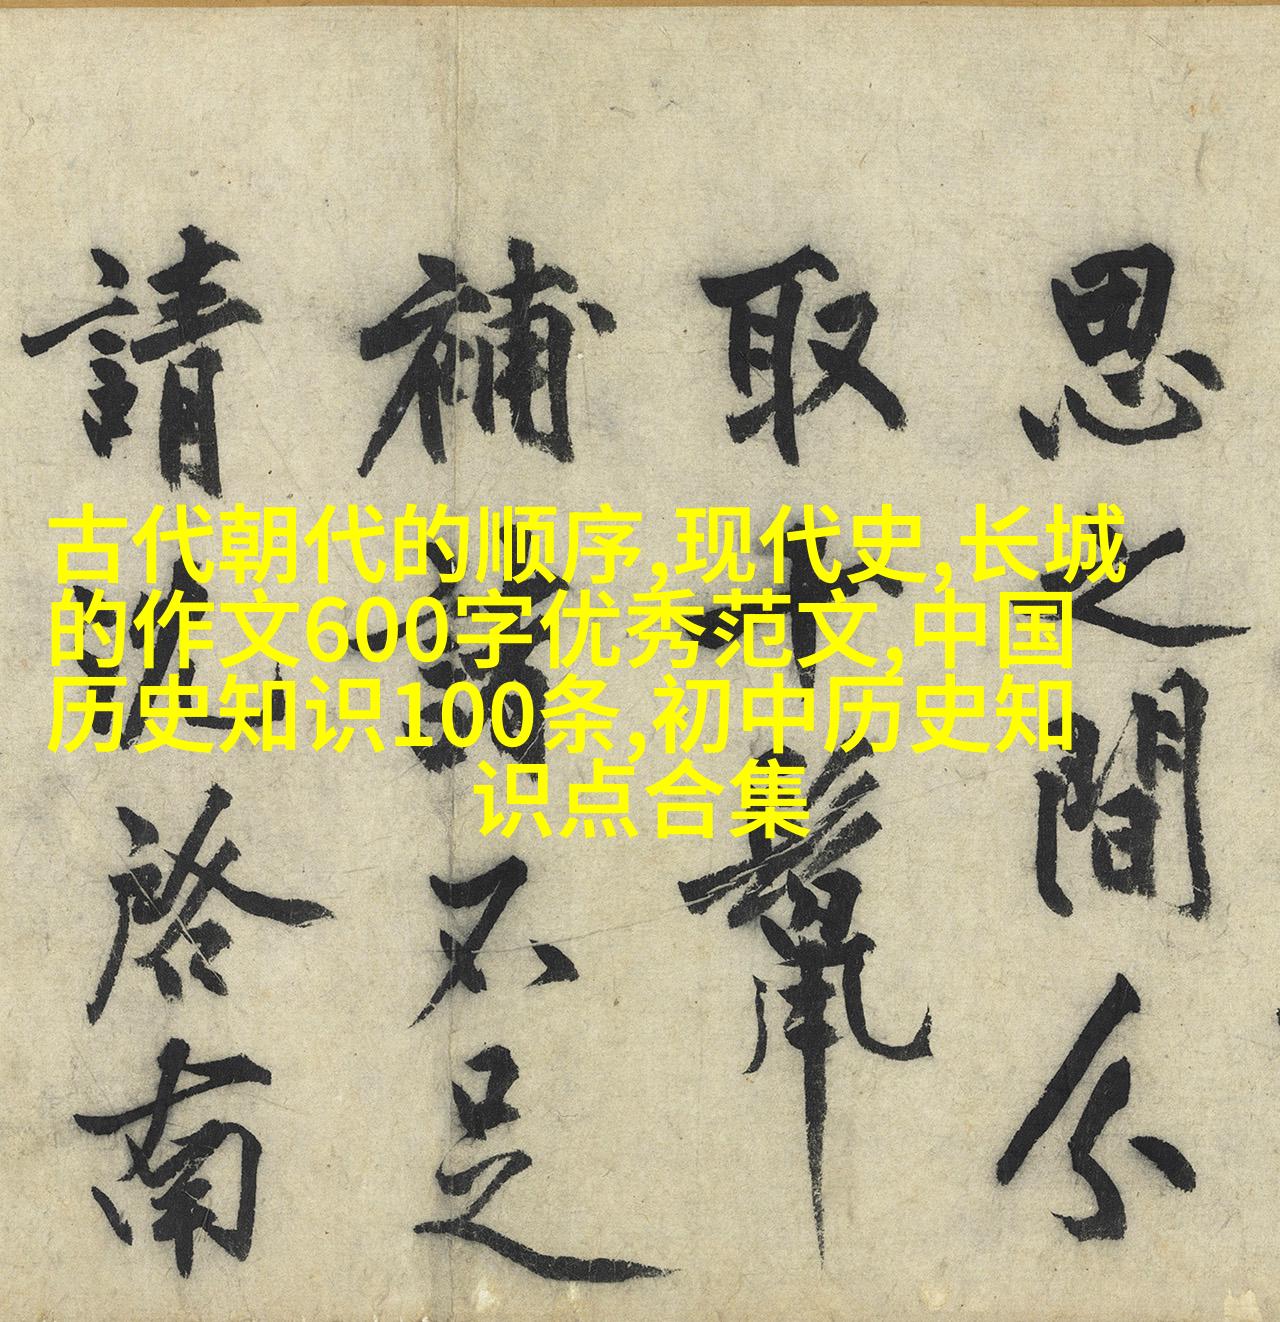 古代朝代的顺序,现代史,长城
的作文600字优秀范文,中国
历史知识100条,初中历史知
识点合集
思之間分
取
補不足
請啓南